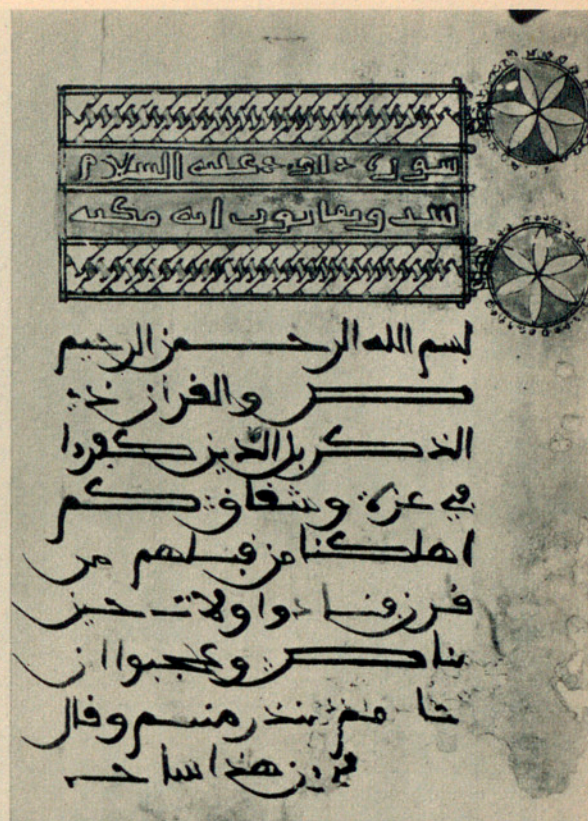 سورة داود عليه السلام
ست وثمانون اية مكية
بسم الله الرحمن الرحيم
ص والقران ذي
الذكر بل الذين كفروا
في عزة وشقاق كم
اهلكنا من قبلهم من
قرن فنادوا ولات حين
مناص وعجبوا ان
جاهم منذر منهم وقال
هذا ساحر